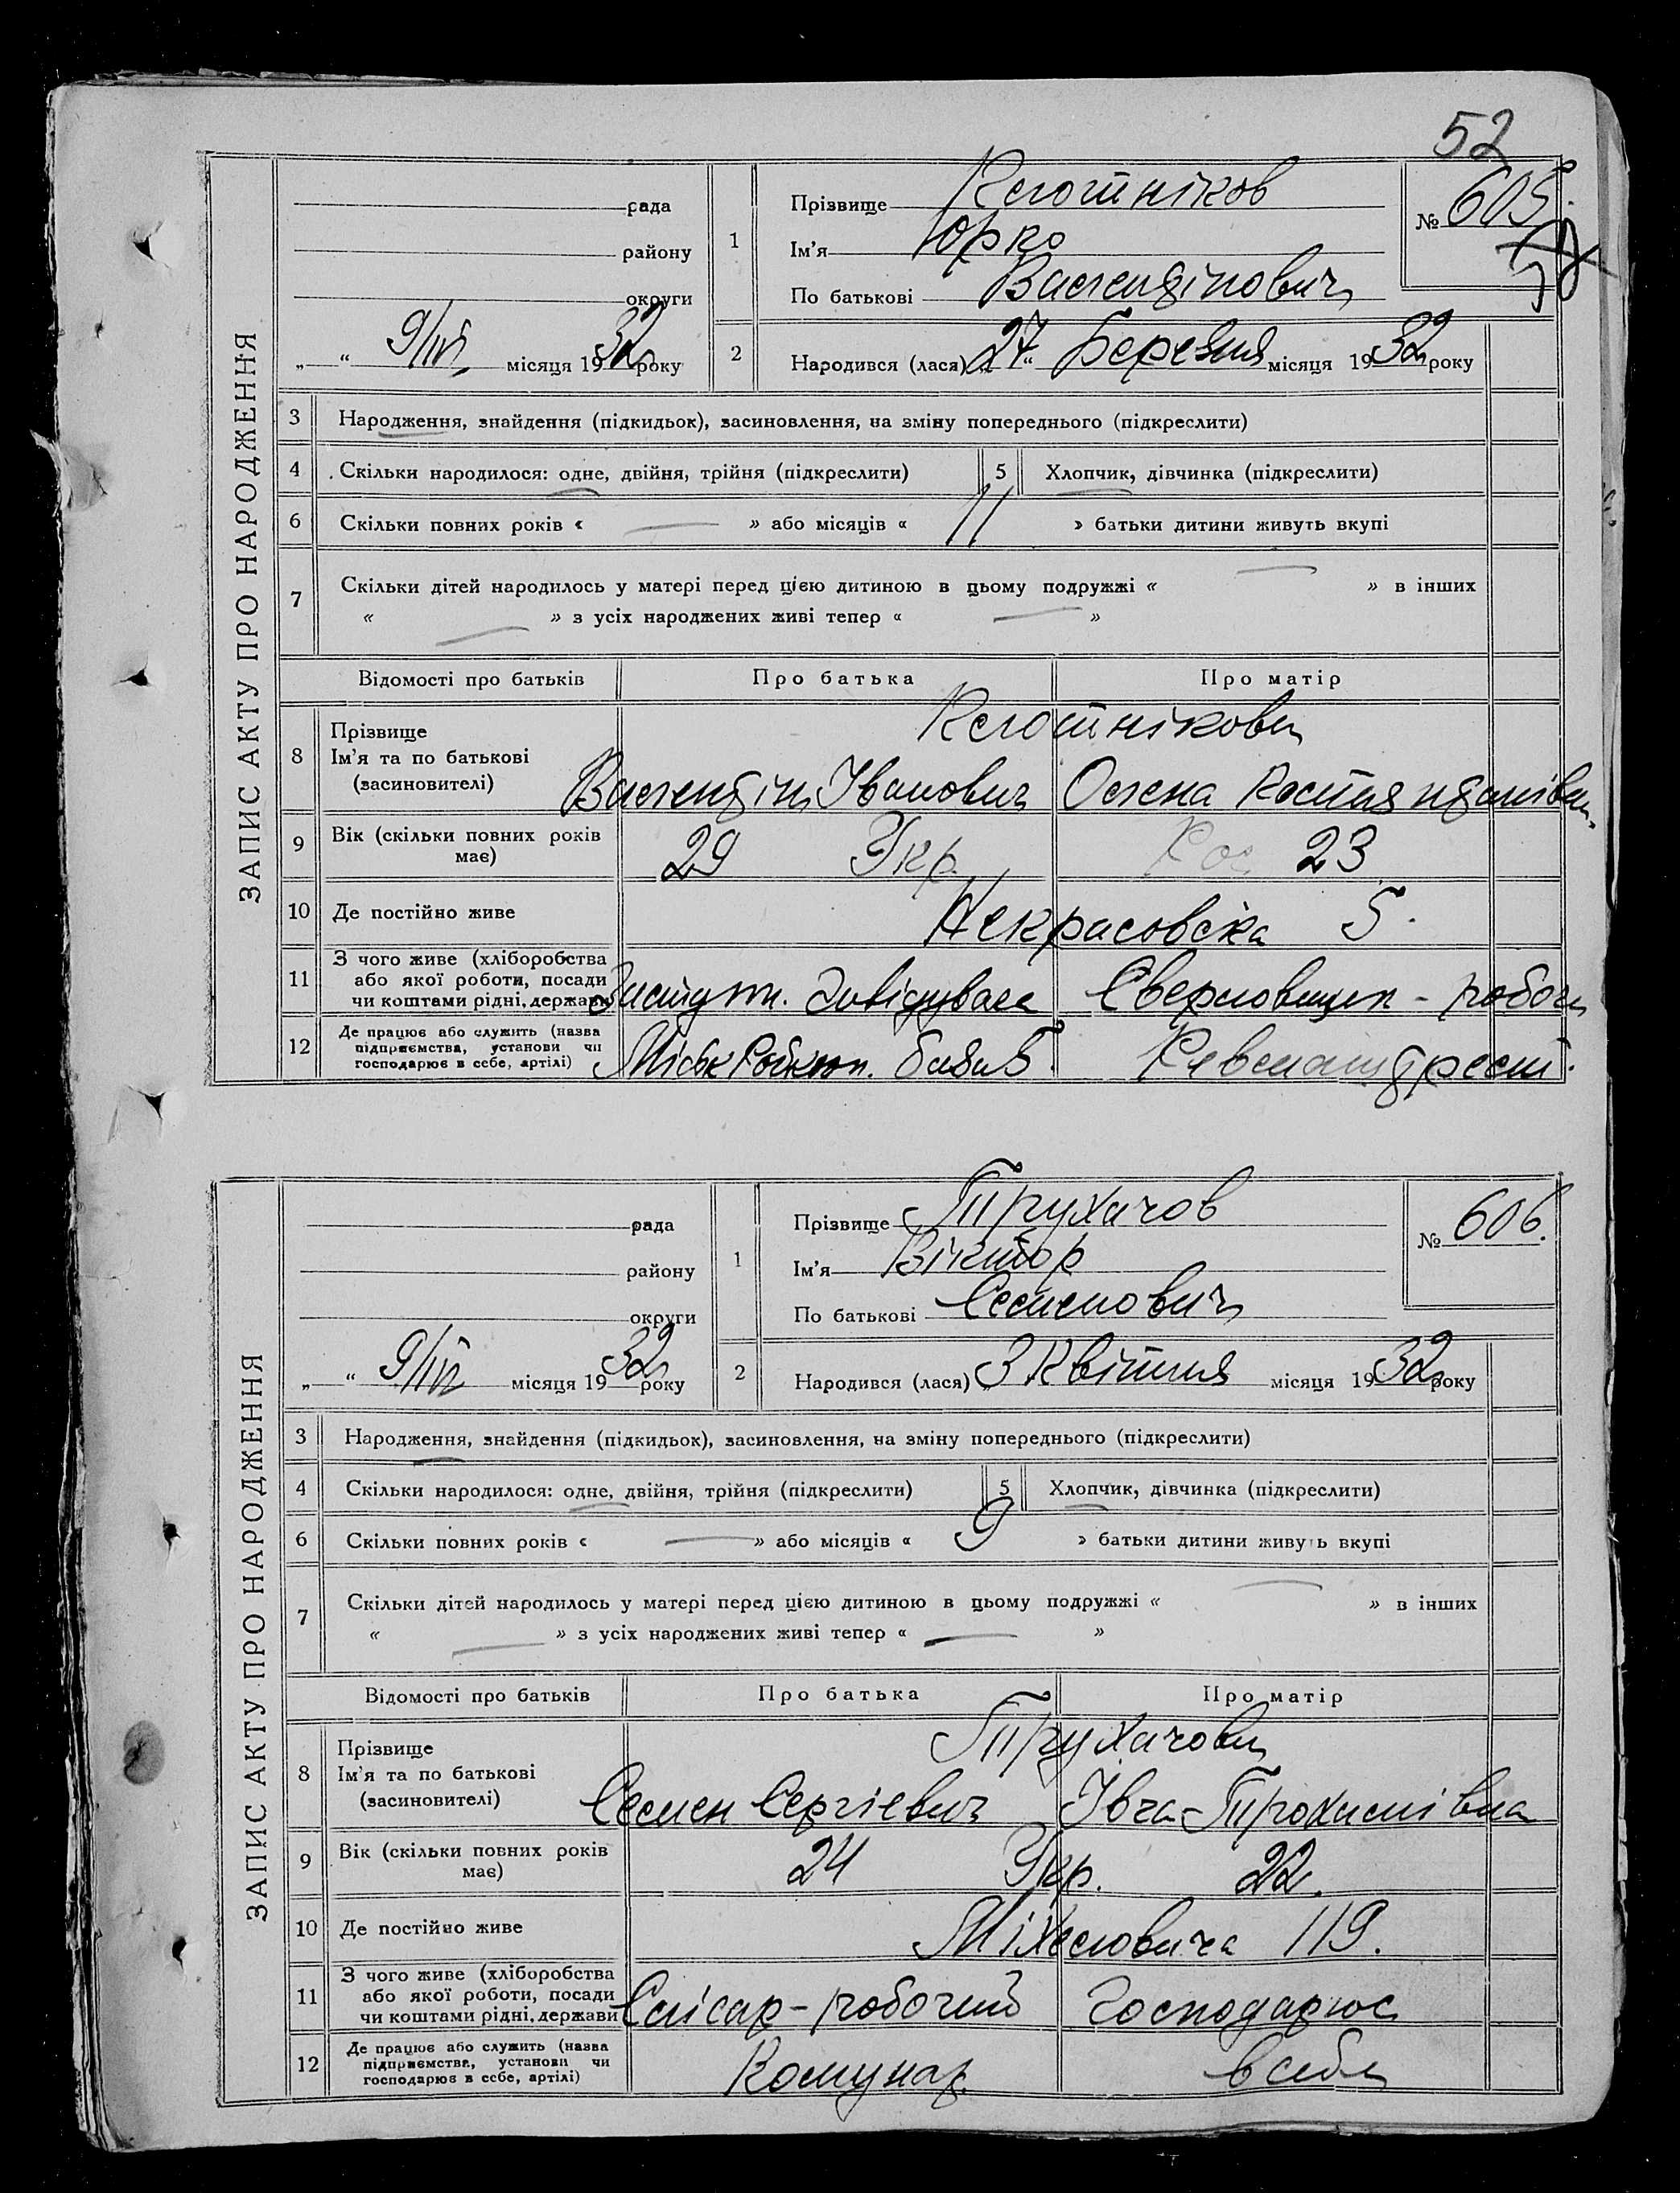 52
ЗАПИС АКТУ ПРО НАРОДЖЕННЯ
рада
району
округи
„ “ 9/IV місяця 1932 року
1
Прізвище
Ім'я Юрко
По батькові Валентінович
№ 605.
2
Народився (лася) „27“ Березня місяця 1932 року
3 Народження, знайдення (підкидьок), засиновлення, на зміну попереднього (підкреслити)
4 Скільки народилося: одне, двійня, трійня (підкреслити) 5 Хлопчик, дівчинка (підкреслити)
6 Скільки повних років « — » або місяців « 11 » батьки дитини живуть вкупі
7 Скільки дітей народилось у матері перед цією дитиною в цьому подружжі « — » в інших
« — » з усіх народжених живі тепер « — »
Відомості про батьків Про батька Про матір
8 Прізвище
Ім'я та по батькові
(засновителі)
Валентін Іванович Олена Костянтинівн.
9 Вік (скільки повних років має) 29 Укр. Рос. 23
10 Де постійно живе Некрасовська 5.
11 З чого живе (хліборобства або якої роботи, посади чи коштами рідні, держави) Заступн. Свердловщик - робоч
12 Де працює або служить (назва підприємства, установи чи господарює в себе, артілі)
ЗАПИС АКТУ ПРО НАРОДЖЕННЯ
рада
району
округи
„ “ 9/IV місяця 1932 року
1
Прізвище Трухачов
Ім'я Віктор
По батькові Семенович
№ 606.
2
Народився (лася) „ 3 Квітня місяця 1932 року
3 Народження, знайдення (підкидьок), засиновлення, на зміну попереднього (підкреслити)
4 Скільки народилося: одне, двійня, трійня (підкреслити) 5 Хлопчик, дівчинка (підкреслити)
6 Скільки повних років « — » або місяців « 9 » батьки дитини живуть вкупі
7 Скільки дітей народилось у матері перед цією дитиною в цьому подружжі « — » в інших
« — » з усіх народжених живі тепер « — »
Відомості про батьків Про батька Про матір
8 Прізвище Трухачови
Ім'я та по батькові
(засиновителі)
Семен Сергієвич Івга Трохимівна
9 Вік (скільки повних років має) 24 Укр. 22.
10 Де постійно живе Міхеловича 119.
11 З чого живе (хліборобства або якої роботи, посади чи коштами рідні, держави) Слісар - робочий Господарює
12 Де працює або служить (назва підприємства, установи чи господарює в себе, артілі) Комунар. в себе